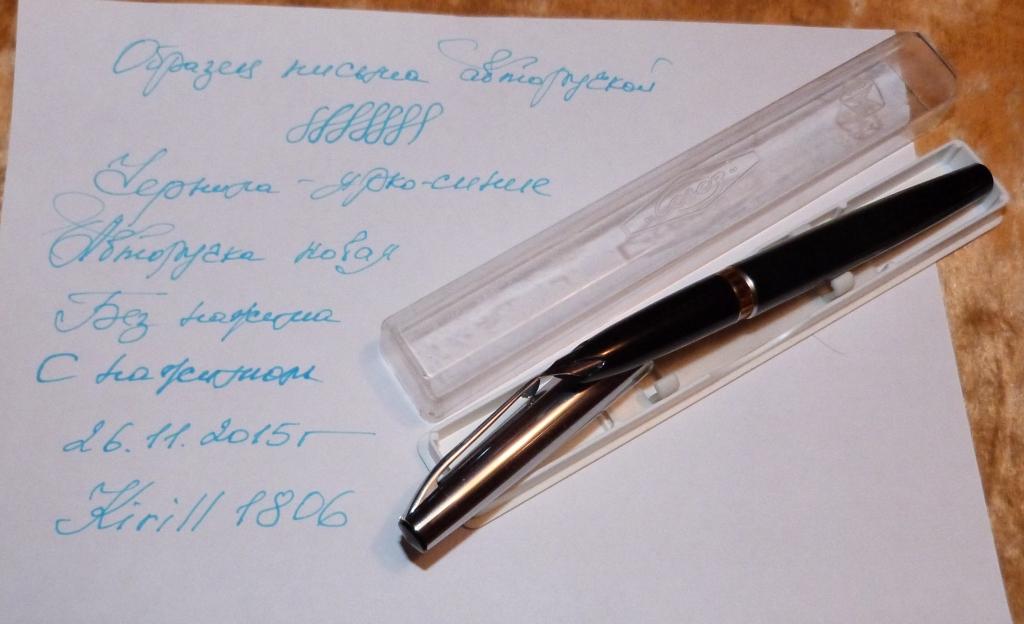 Образец письма авторучкой
Чернила - ярко-синие
Авторучка новая
Без нажима
С нажимом
26.11.2015г
Kirill 1806